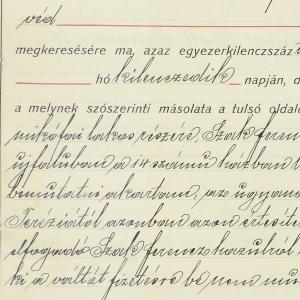 véd
megkeresésére ma, azaz egyezerkilenczszáz
hó kilenczedik napján, d
a melynek szószerinti másolata a tulsó oldalo
mikófai lakos részére, Szak feren
ujfaluban a 14 számu házban l
bemutatni akartam, az ugyano
Teréziától azonban azon értesíté
elfogadó Szak ferencz hazulról
ki a váltót fizetésre be nem mu